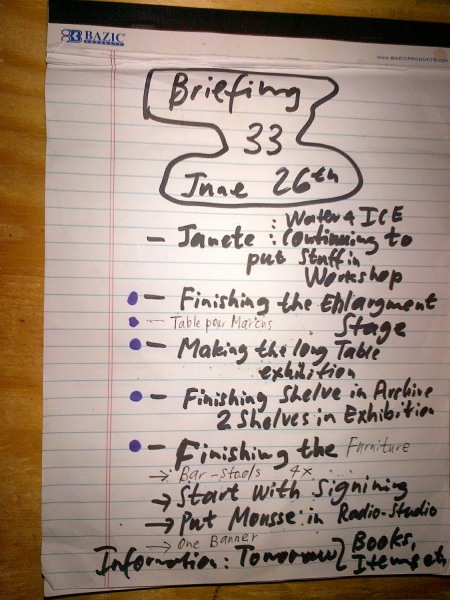 BAZIC
PRODUCTS
WWW.BAZICPRODUCTS.COM
Briefing
33
June 26th
: Water & ICE
- Janete : Continuing to
put Stuff in
Workshop
- Finishing the Enlargment
Stage
- Table pour Marcus
- Making the long Table
exhibition
- Finishing Shelve in Archive
2 Shelves in Exhibition
- Finishing the Furniture
→ Bar-Stools 4x
→ Start with Signining
→ Put Mousse in Radio-Studio
→ One Banner
Information: Tomorrow } Books,
Items etc